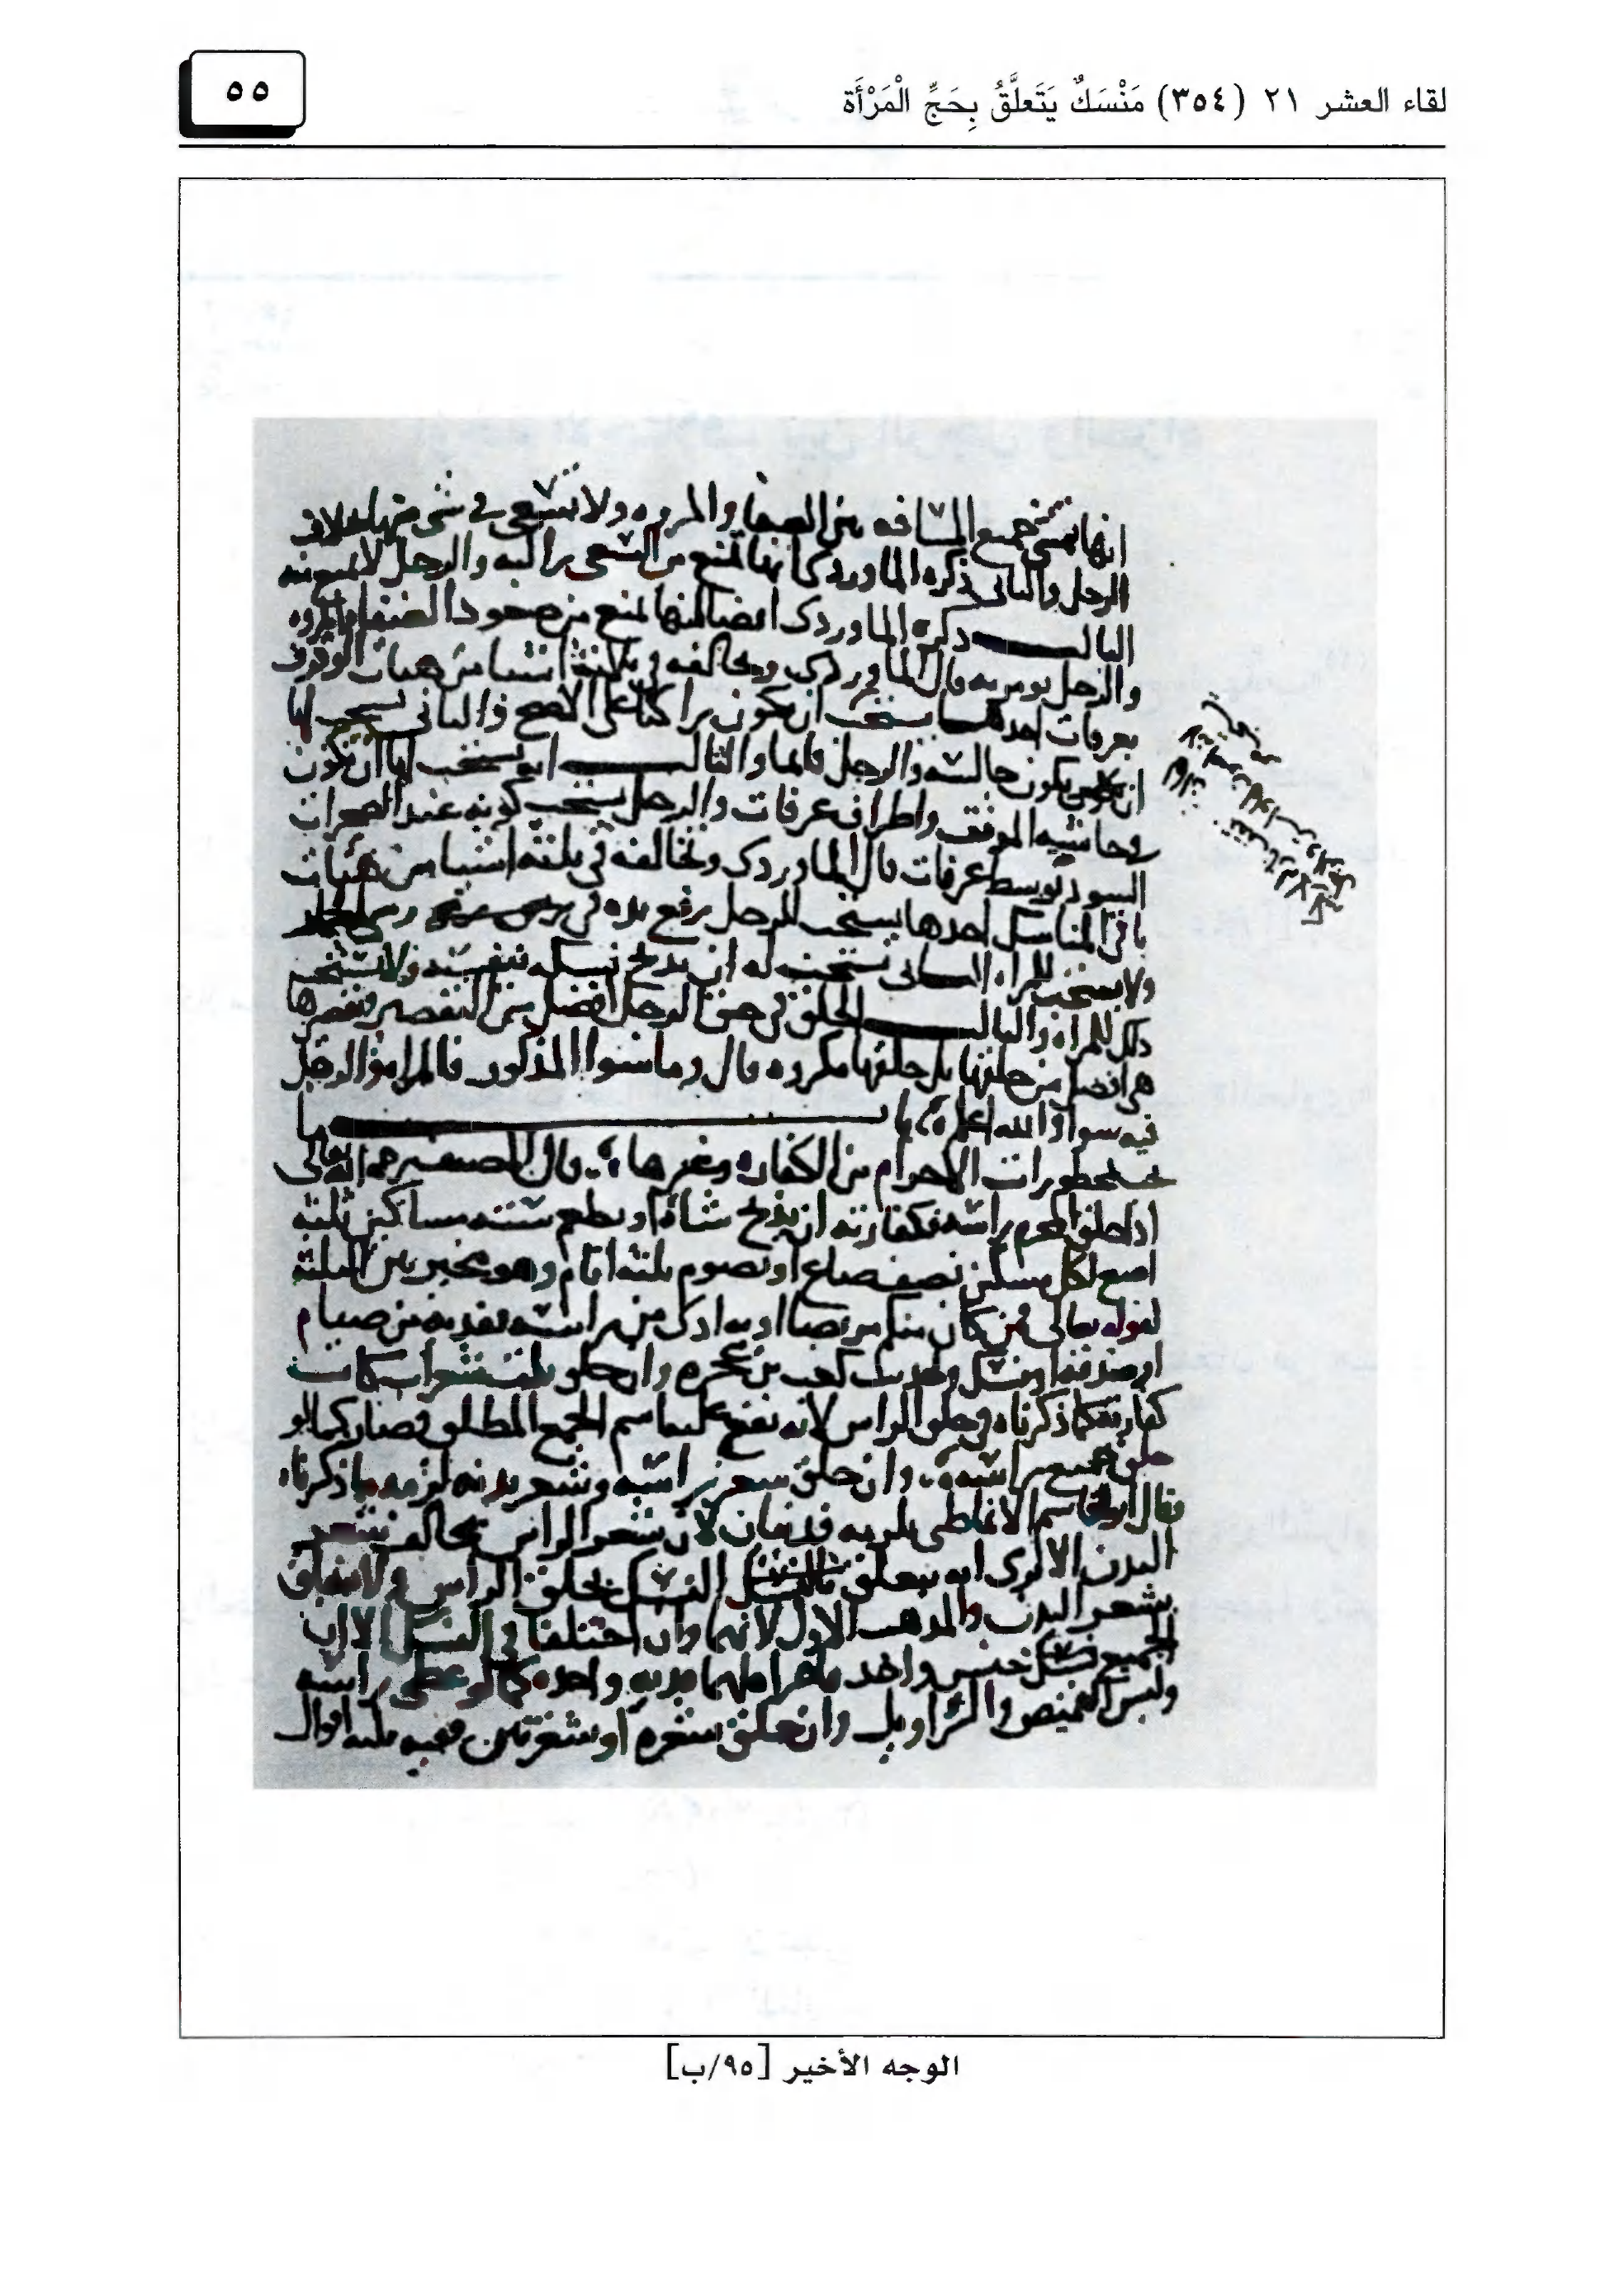 لقاء العشر ٢١ (٣٥٤) مَنْسَكٌ يَتَعلَّقُ بِحَجِّ الْمَرْأَة
٥٥
انها تمشي جميع المسافه بين الصفا والمروه ولا تسعى في شي منها بخلاف
الرجل والثاني ذكره الماوردي انها تمنع من السعي راكبه والرجل لا يمنع منه
الثالث ذكره الماوردي ايضا انها تمنع من صعود الصفا والمروه
والرجل يومر به قال الماوردي ويخالفه في ثلثة اشيا من هيات الوقوف
بعرفات احدها يستحب ان يكون راكبا على الاصح والثاني يستحب لها
ان تكون جالسه والرجل قائما والثالث انه يستحب لها ان تكون
في حاشيه الموقف واطراف عرفات والرجل يستحب كونه عند الصخرات
السود بوسط عرفات قال الماوردي وتخالفه في ثلثه اشيا من هيات
باقي المناسك احدها يستحب للرجل رفع يده في
ولا يستحب للمراه الثاني يستحب له ان يذبح نسكه بنفسه ولا يستحب
ذلك للمراه والثالث الحلق في حق الرجل افضل من التقصير وتقصيرها
هي افضل من حلقها بل حلقها مكروه قال وما سوا المذكور فالمراه والرجل
فيه سوا والله اعلم باب ما
يجب بمحظورات الاحرام من الكفاره وغيرها قال المصنف رحمه الله تعالى
اذا حلق المحرم راسه فكفارته ان يذبح شاة او يطعم سته مساكين ثلثه
اصع لكل مسكين نصف صاع او يصوم ثلثه ايام وهو مخير بين الثلثه
لقوله تعالى فمن كان منكم مريضا او به اذى من راسه ففديه من صيام
او صدقه او نسك ولحديث كعب بن عجره وان حلق ثلث شعرات كانت
كفارته كما ذكرناه في حلق الراس لانه يقع عليها اسم الجمع المطلق فصار كما لو
حلق جميع راسه وان حلق شعر راسه وشعر بدنه لزمه ما ذكرناه
وقال ابو القاسم الانماطي يلزمه فديتان لان شعر الراس يخالف شعر
البدن الا ترى انه يتعلق النسك بحلق الراس ولا يتعلق
بشعر البدن والمذهب الاول لانهما وان اختلفا في النسك الا ان
الجميع جنس واحد فاجزا لهما فديه واحده كما لو غطى راسه
ولبس القميص والسراويل وان حلق شعره او شعرتين ففيه ثلثه اقوال
الوجه الأخير [٩٥/ب]